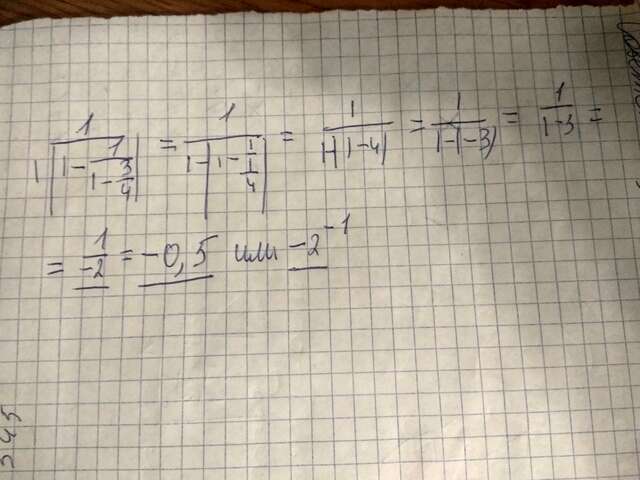 1/(1-|1-1/(1-3/4)|) = 1/(1-|1-1/(1/4)|) = 1/(1-|1-4|) = 1/(1-|-3|) = 1/(1-3) =
= 1/-2 = -0,5 или -2⁻¹
345